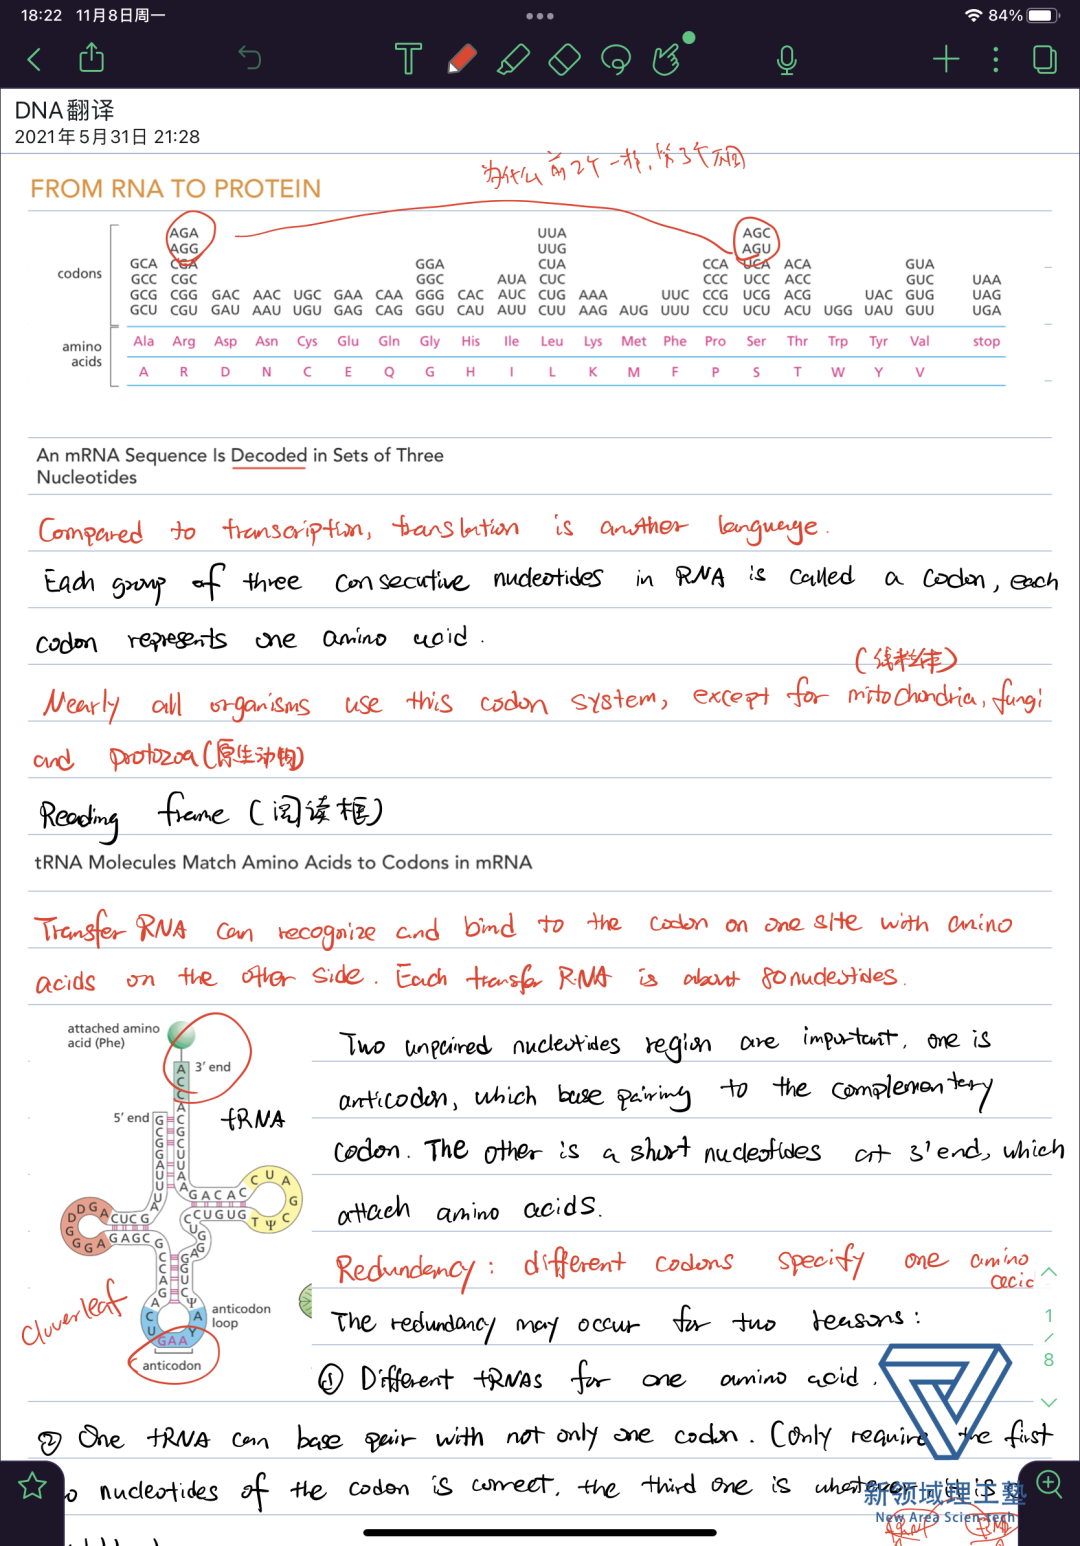 18:22 11月8日周一
84%
DNA翻译
2021年5月31日 21:28
为什么前2个一样,第3个不同
FROM RNA TO PROTEIN
AGA UUA AGC
AGG UUG AGU
GCA CGA GGA CUA CCA UCA ACA GUA
codons
GCC CGC GGC AUA CUC CCC UCC ACC GUC UAA
GCG CGG GAC AAC UGC GAA CAA GGG CAC AUC CUG AAA UUC CCG UCG ACG UAC GUG UAG
GCU CGU GAU AAU UGU GAG CAG GGU CAU AUU CUU AAG AUG UUU CCU UCU ACU UGG UAU GUU UGA
amino acids
Ala Arg Asp Asn Cys Glu Gln Gly His Ile Leu Lys Met Phe Pro Ser Thr Trp Tyr Val stop
A R D N C E Q G H I L K M F P S T W Y V
An mRNA Sequence Is Decoded in Sets of Three
Nucleotides
Compared to transcription, translation is another language.
Each group of three consecutive nucleotides in RNA is called a codon, each
codon represents one amino acid.
(线粒体)
Nearly all organisms use this codon system, except for mitochondria, fungi
and protozoa (原生动物)
Reading frame (阅读框)
tRNA Molecules Match Amino Acids to Codons in mRNA
Transfer RNA can recognize and bind to the codon on one site with amino
acids on the other side. Each transfer RNA is about 80 nucleotides.
attached amino
acid (Phe)
3′ end
5′ end
tRNA
A
C
C
A
C
G
C
U
U
A
A
G
C
G
G
A
U
U
U
A
GACAC
CUGUG
C U A G C Ψ T
CUCG
GAGC
D D G A
G G G A
anticodon
loop
GAA
anticodon
cloverleaf
Two unpaired nucleotides region are important, one is
anticodon, which base pairing to the complementary
codon. The other is a short nucleotides at 3' end, which
attach amino acids.
Redundancy: different codons specify one amino
acid
The redundancy may occur for two reasons:
① Different tRNAs for one amino acid.
② One tRNA can base pair with not only one codon. (Only require the first
nucleotides of the codon is correct, the third one is whatever, it is
1
/
8
新领域理工塾
New Area Scien-tech